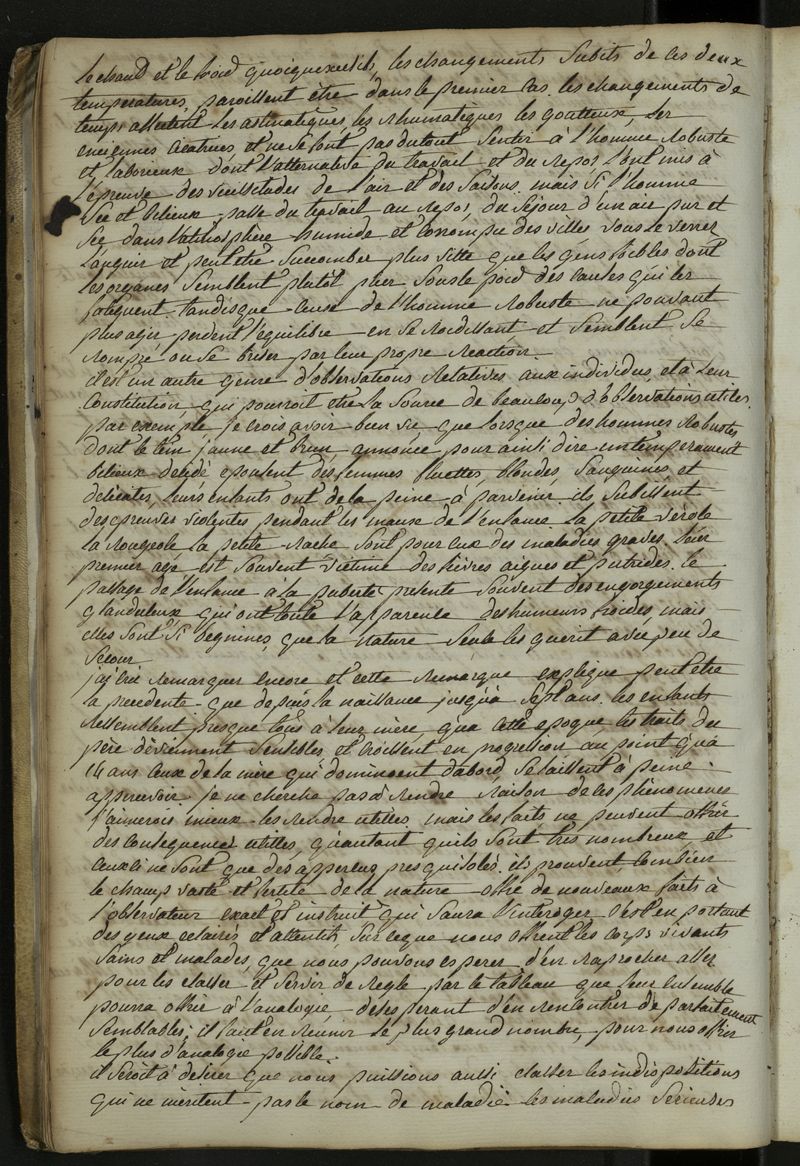 le chaud et le froid quoiqu'excessifs, les changements subits de ces deux
temperatures, paroissent être dans le premier cas. les changements de
temps affectent les astmatiques, les rhumatiques les goutteux, les
enciennes cicatrices et ne se font pas du tout sentir à l'homme robuste
et laborieux dont l'alternative du travail et du repos l'ont mis à
l'epreuve des vicissitudes de l'air et des saisons. mais si l'homme
sec et bilieux passe du travail au repos, du sejour d'un air pur et
sec dans l'atmosphère humide et corrompu des villes vous le verrez
languir et peut etre succomber plus vitte que les gens foibles dont
les organes semblent plutôt plier sous le poid des causes qui les
fatiguent, tandisque ceux de l'homme robuste ne pouvant
plus agir perdent l'equilibre en se roidissant et semblent se
rompre ou se briser par leur propre reaction.
il est un autre genre d'observations relatives aux individus, et à leur
constitution qui pourroit etre la source de beaucoup d'observations utiles.
par exemple je crois avoir bien vu que lorsque des hommes robustes
dont le tein jaune et brun annonce pour ainsi dire un temperament
bilieux decidé epousent des femmes fluettes, blondes, sanguines et
delicates, leurs enfants ont de la peine à parvenir. ils subissent
des epreuves violentes pendant les maux de l'enfance. la petite verole
la rougeole la petite rache sont pour eux des maladies graves. leur
premier age est souvent victime des fièvres aigues et putrides. le
passage de l'enfance à la puberté presente souvent des engorgements
glanduleux qui ont toute l'apparence des humeurs froides, mais
elles sont si begnines, que la nature seule les guerit avec peu de
secour.
j'ai cru remarquer encore et cette remarque explique peut etre
la precedente que depuis la naissance jusqu'à sept ans les enfants
ressemblent presque tous à leur mère, qu'a cette epoque les traits du
père deviennent sensibles et croissent en progression au point qu'à
14 ans ceux de la mère qui dominoent d'abord se laissent à peine
appercevoir. je ne cherche pas à rendre raison de ces phènomenes
j'aimerois mieux les rendre utiles, mais les faits ne peuvent offrir
des consequences utilles, qu'autant qu'ils sont très nombreux et
ceux ci ne sont que des apperçus presqu'isolés. ils prouvent combien
le champ vaste et fertile de la nature offre de nouveaux faits à
l'observateur exact et instruit qui saura l'interoger. c'est en portant
des yeux eclairés et attentifs, sur ce que nous offrent les corps vivants
sains et malades, que nous pouvons esperer d'en raprocher assez
pour les classer et servir de regle par le tableau que leur ensemble
pourra offrir à l'analogie, desesperant d'en rencontrer de parfaitement
semblables; il faut en reunir le plus grand nombre, pour nous offrir
le plus d'analogie possible.
il seroit à desirer que nous puissions aussi classer les indispositions
qui ne meritent pas le nom de maladie. les maladies serieuses